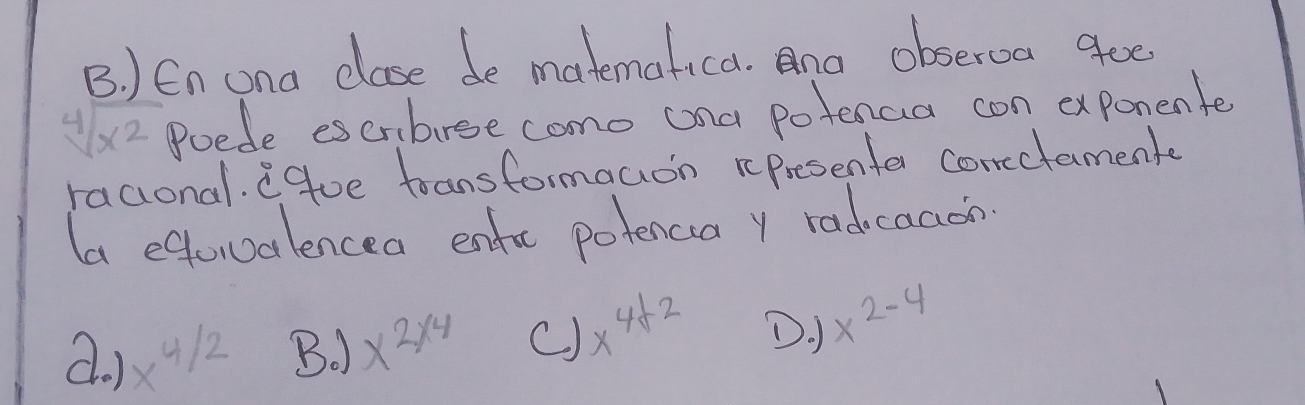 B.) En una clase de matematica. Ana observa que
⁴√x2 puede escribirse como una potencia con exponente
racional. ¿que transformación representa correctamente
la equivalencea entre potencia y radicación.
a.) x^4/2 B.) x^2/4 C.) x^4+2 D.) x^2-4